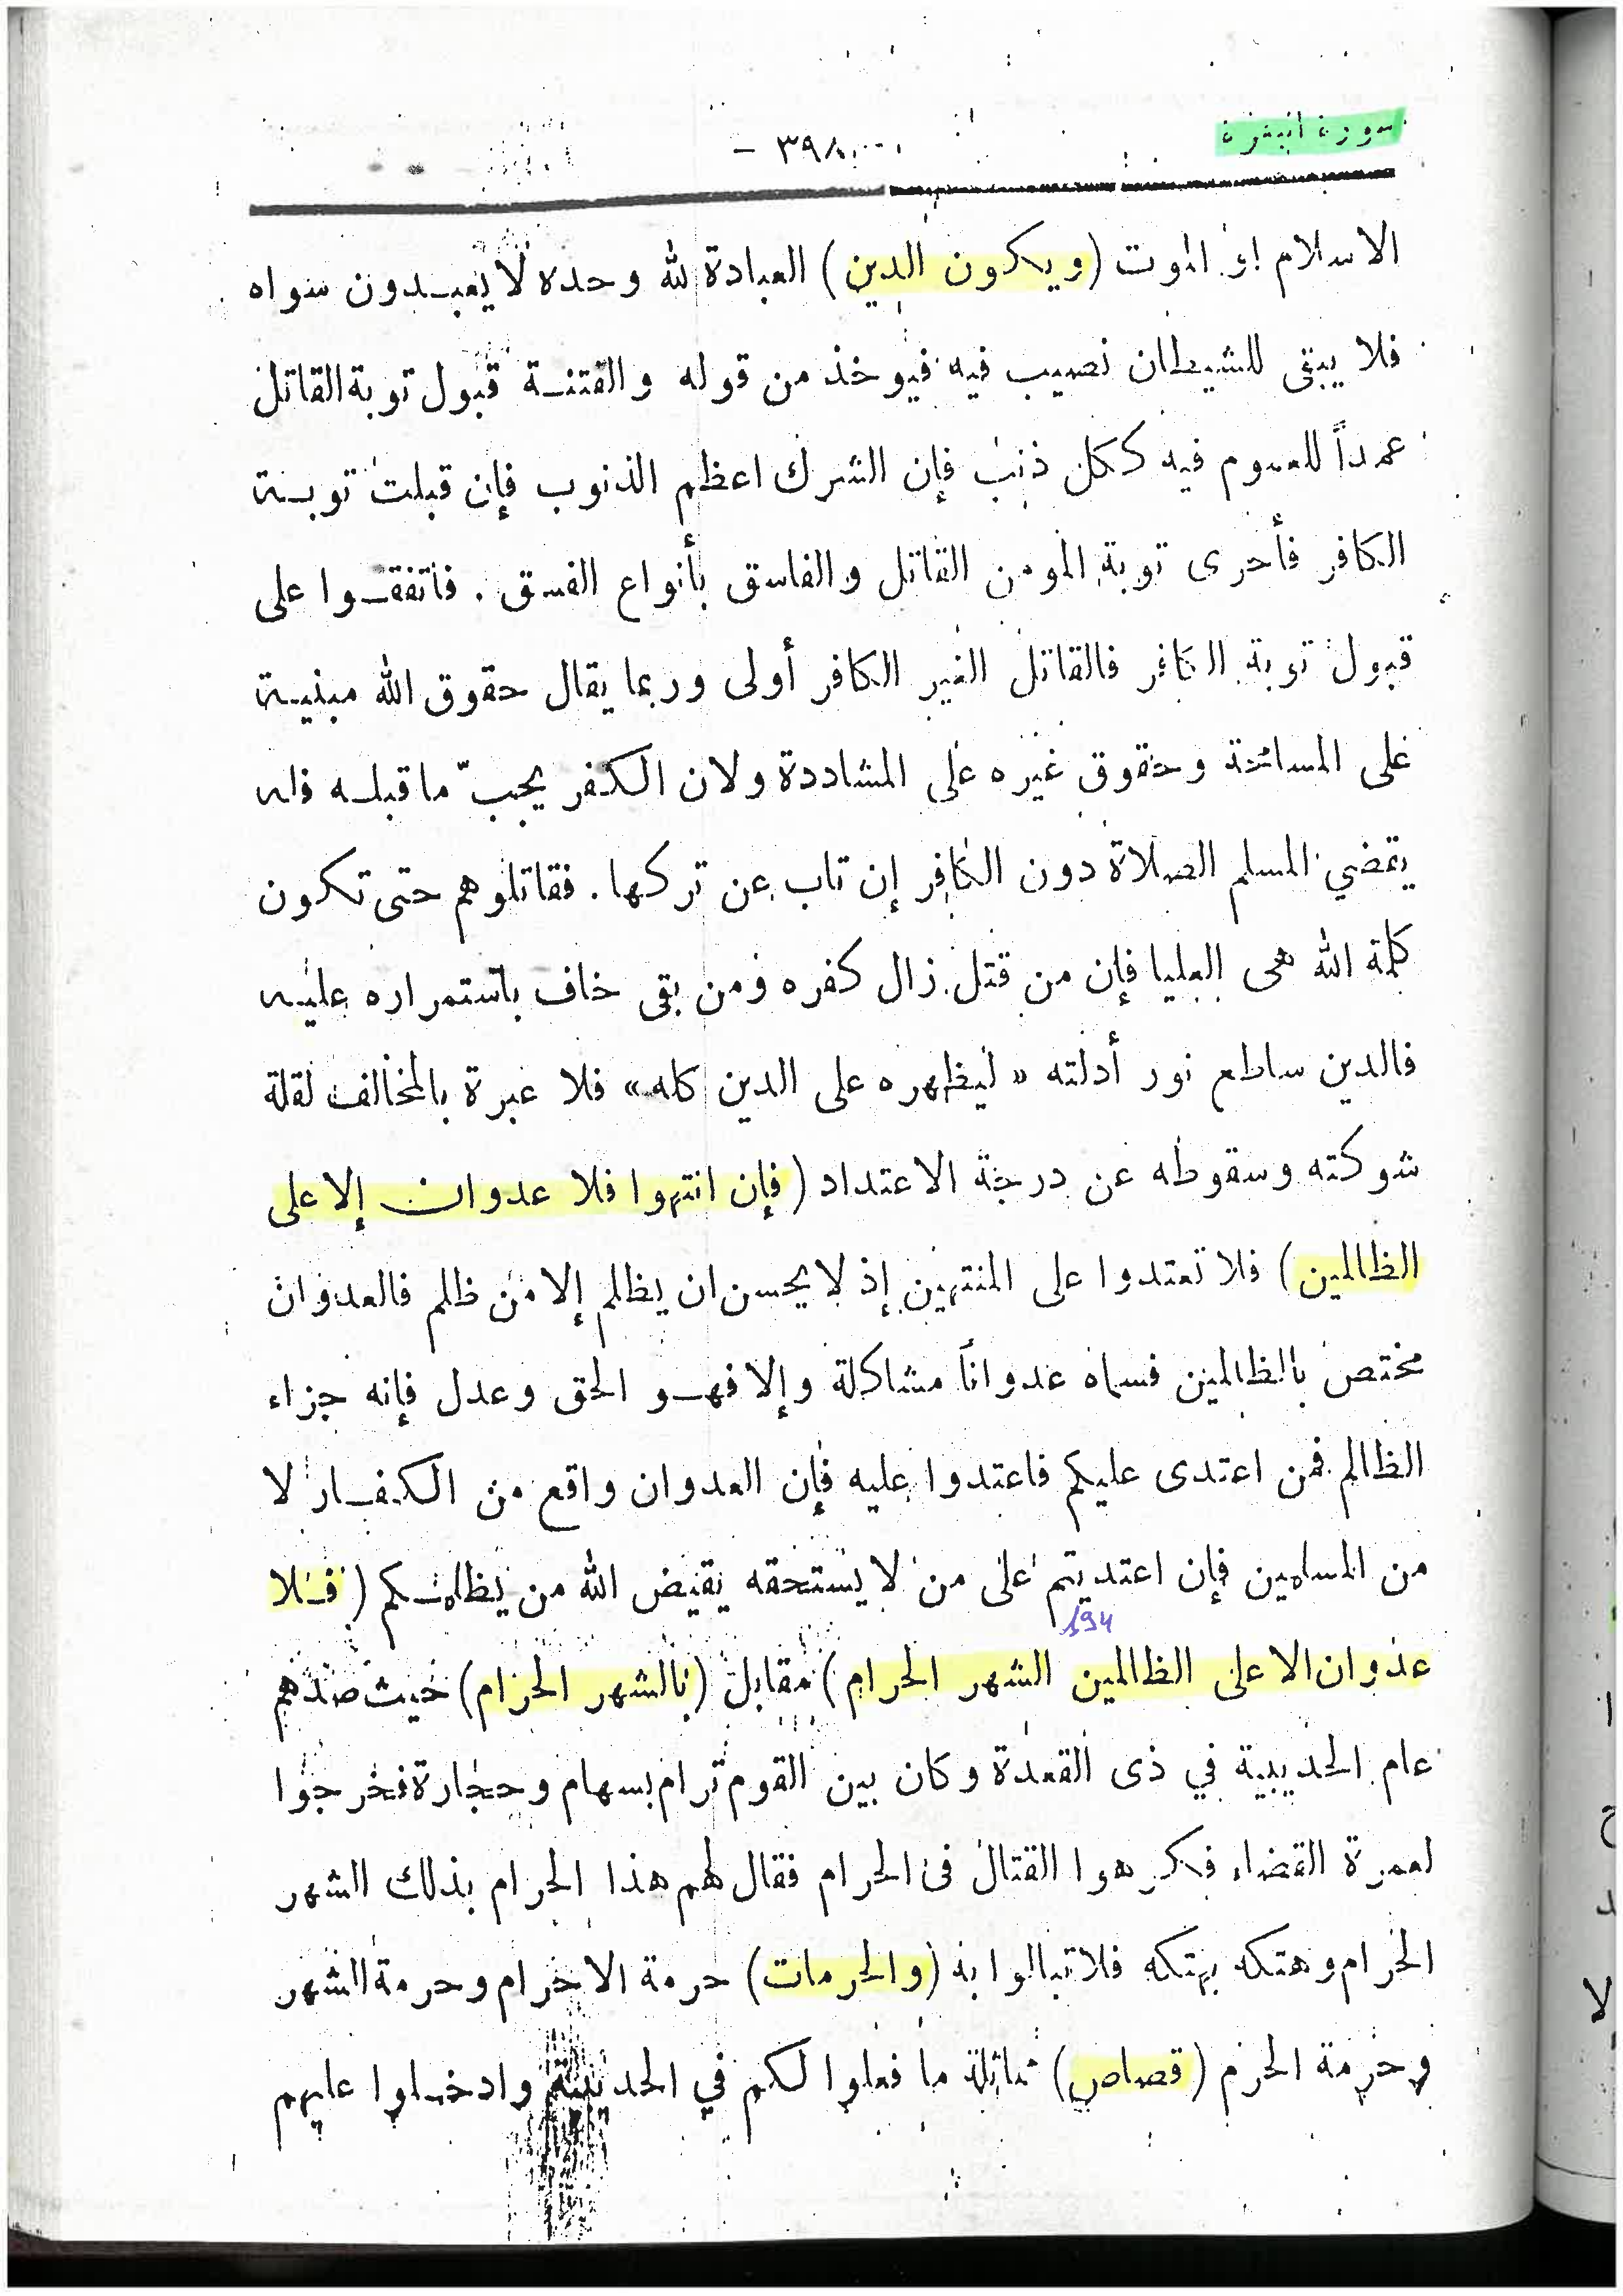 سورة البقرة
- ٣٩٨ -
الاسلام او الموت (ويكون الدين) العبادة لله وحده لا يعبدون سواه
فلا يبقى للشيطان نصيب فيه فيوخذ من قوله والفتنة قبول توبة القاتل
عمداً للعموم فيه ككل ذنب فإن الشرك اعظم الذنوب فإن قبلت توبة
الكافر فأحرى توبة المومن القاتل والفاسق بأنواع الفسق . فاتفقوا على
قبول توبة الكافر فالقاتل الغير الكافر أولى وربما يقال حقوق الله مبنية
على المسامحة وحقوق غيره على المشاددة ولان الكفر يجبّ ما قبله فله
يقضي المسلم الصلاة دون الكافر إن تاب عن تركها . فقاتلوهم حتى تكون
كلمة الله هى العليا فإن من قتل زال كفره ومن بقى خاف باستمراره عليه
فالدين ساطع نور أدلته « ليظهره على الدين كله » فلا عبرة بالمخالف لقلة
شوكته وسقوطه عن درجة الاعتداد (فإن انتهوا فلا عدوان إلا على
الظالمين) فلا تعتدوا على المنتهين إذ لا يحسن ان يظلم إلا من ظلم فالعدوان
مختص بالظالمين فسماه عدواناً مشاكلة وإلا فهو الحق وعدل فإنه جزاء
الظالم فمن اعتدى عليكم فاعتدوا عليه فإن العدوان واقع من الكفار لا
من المسلمين فإن اعتديتم على من لا يستحقه يقيض الله من يظلمكم (فلا
194
عدوان الا على الظالمين الشهر الحرام) مقابل (بالشهر الحرام) حيث صدهم
عام الحديبية في ذى القعدة وكان بين القوم ترام بسهام وحجارة فخرجوا
لعمرة القضاء فكرهوا القتال فى الحرام فقال لهم هذا الحرام بذلك الشهر
الحرام وهتكه بهتكه فلا تبالوا به (والحرمات) حرمة الاحرام وحرمة الشهر
وحرمة الحرم (قصاص) مماثلة ما فعلوا لكم في الحديبية وادخلوا عليهم